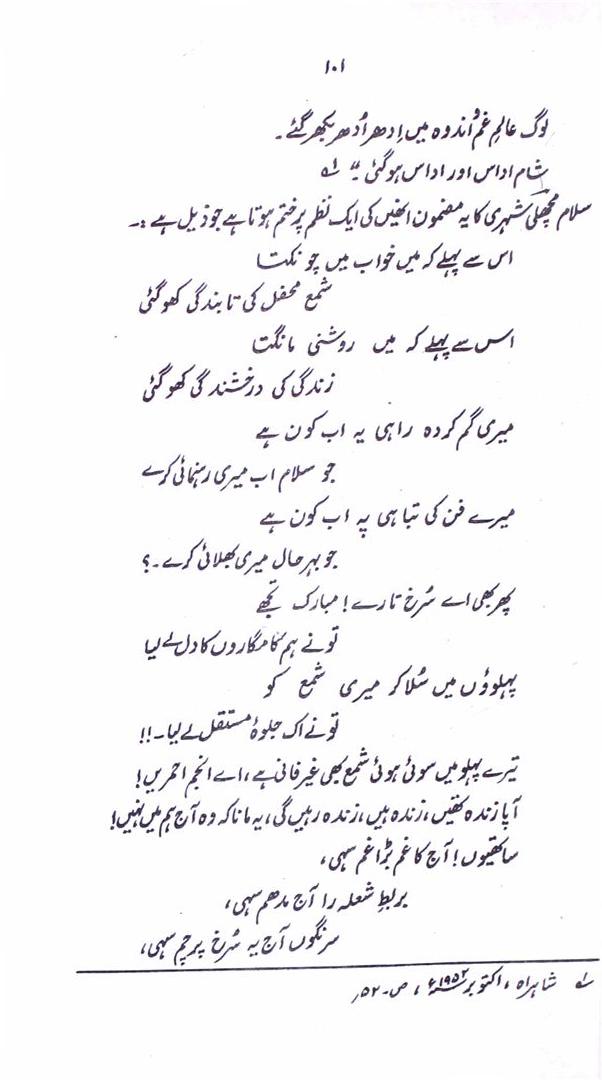 ۱۰۱
لوگ عالمِ غم و اندوہ میں اِدھر اُدھر بکھر گئے۔
شام اداس اور اداس ہوگئی۔" ؎۱
سلام مچھلی شہری کا یہ مضمون انھیں کی ایک نظم پر ختم ہوتا ہے جو ذیل ہے :۔
اس سے پہلے کہ میں خواب میں چونکتا
شمع محفل کی تابندگی کھو گئی
اس سے پہلے کہ میں روشنی مانگتا
زندگی کی درخشندگی کھو گئی
میری گم کردہ راہی پہ اب کون ہے
جو سلام اب میری رہنمائی کرے
میرے فن کی تباہی پہ اب کون ہے
جو بہر حال میری بھلائی کرے۔؟
پھر بھی اے سُرخ تارے! مبارک تجھے
تونے ہم کامگاروں کا دل لے لیا
پہلوؤں میں سُلا کر میری شمع کو
تونے اک جلوۂ مستقل لے لیا۔!!
تیرے پہلو میں سوئی ہوئی شمع بھی غیر فانی ہے، اے انجم احمریں!
آپا زندہ تھیں، زندہ ہیں، زندہ رہیں گی، یہ مانا کہ وہ آج ہم میں نہیں!
ساتھیوں! آج کا غم بڑا غم سہی،
بربطِ شعلہ را آج مدھم سہی،
سرنگوں آج یہ سُرخ پرچم سہی،
؎۱ شاہراہ، اکتوبر ۱۹۵۲ء، ص۔۵۲،